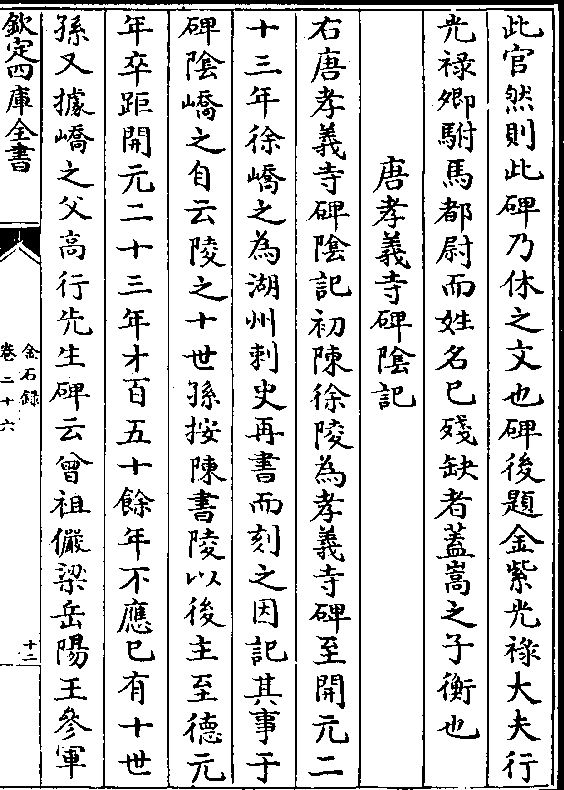 此官然則此碑乃休之文也碑後題金紫光祿大夫行
光祿卿駙馬都尉而姓名已殘缺者蓋嵩之子衡也
唐孝義寺碑陰記
右唐孝義寺碑陰記初陳徐陵為孝義寺碑至開元二
十三年徐嶠之為湖州刺史再書而刻之因記其事于
碑陰嶠之自云陵之十世孫按陳書陵以後主至德元
年卒距開元二十三年才百五十餘年不應已有十世
孫又據嶠之父高行先生碑云曾祖儼梁岳陽王參軍
欽定四庫全書
金石錄
卷二十六
十二